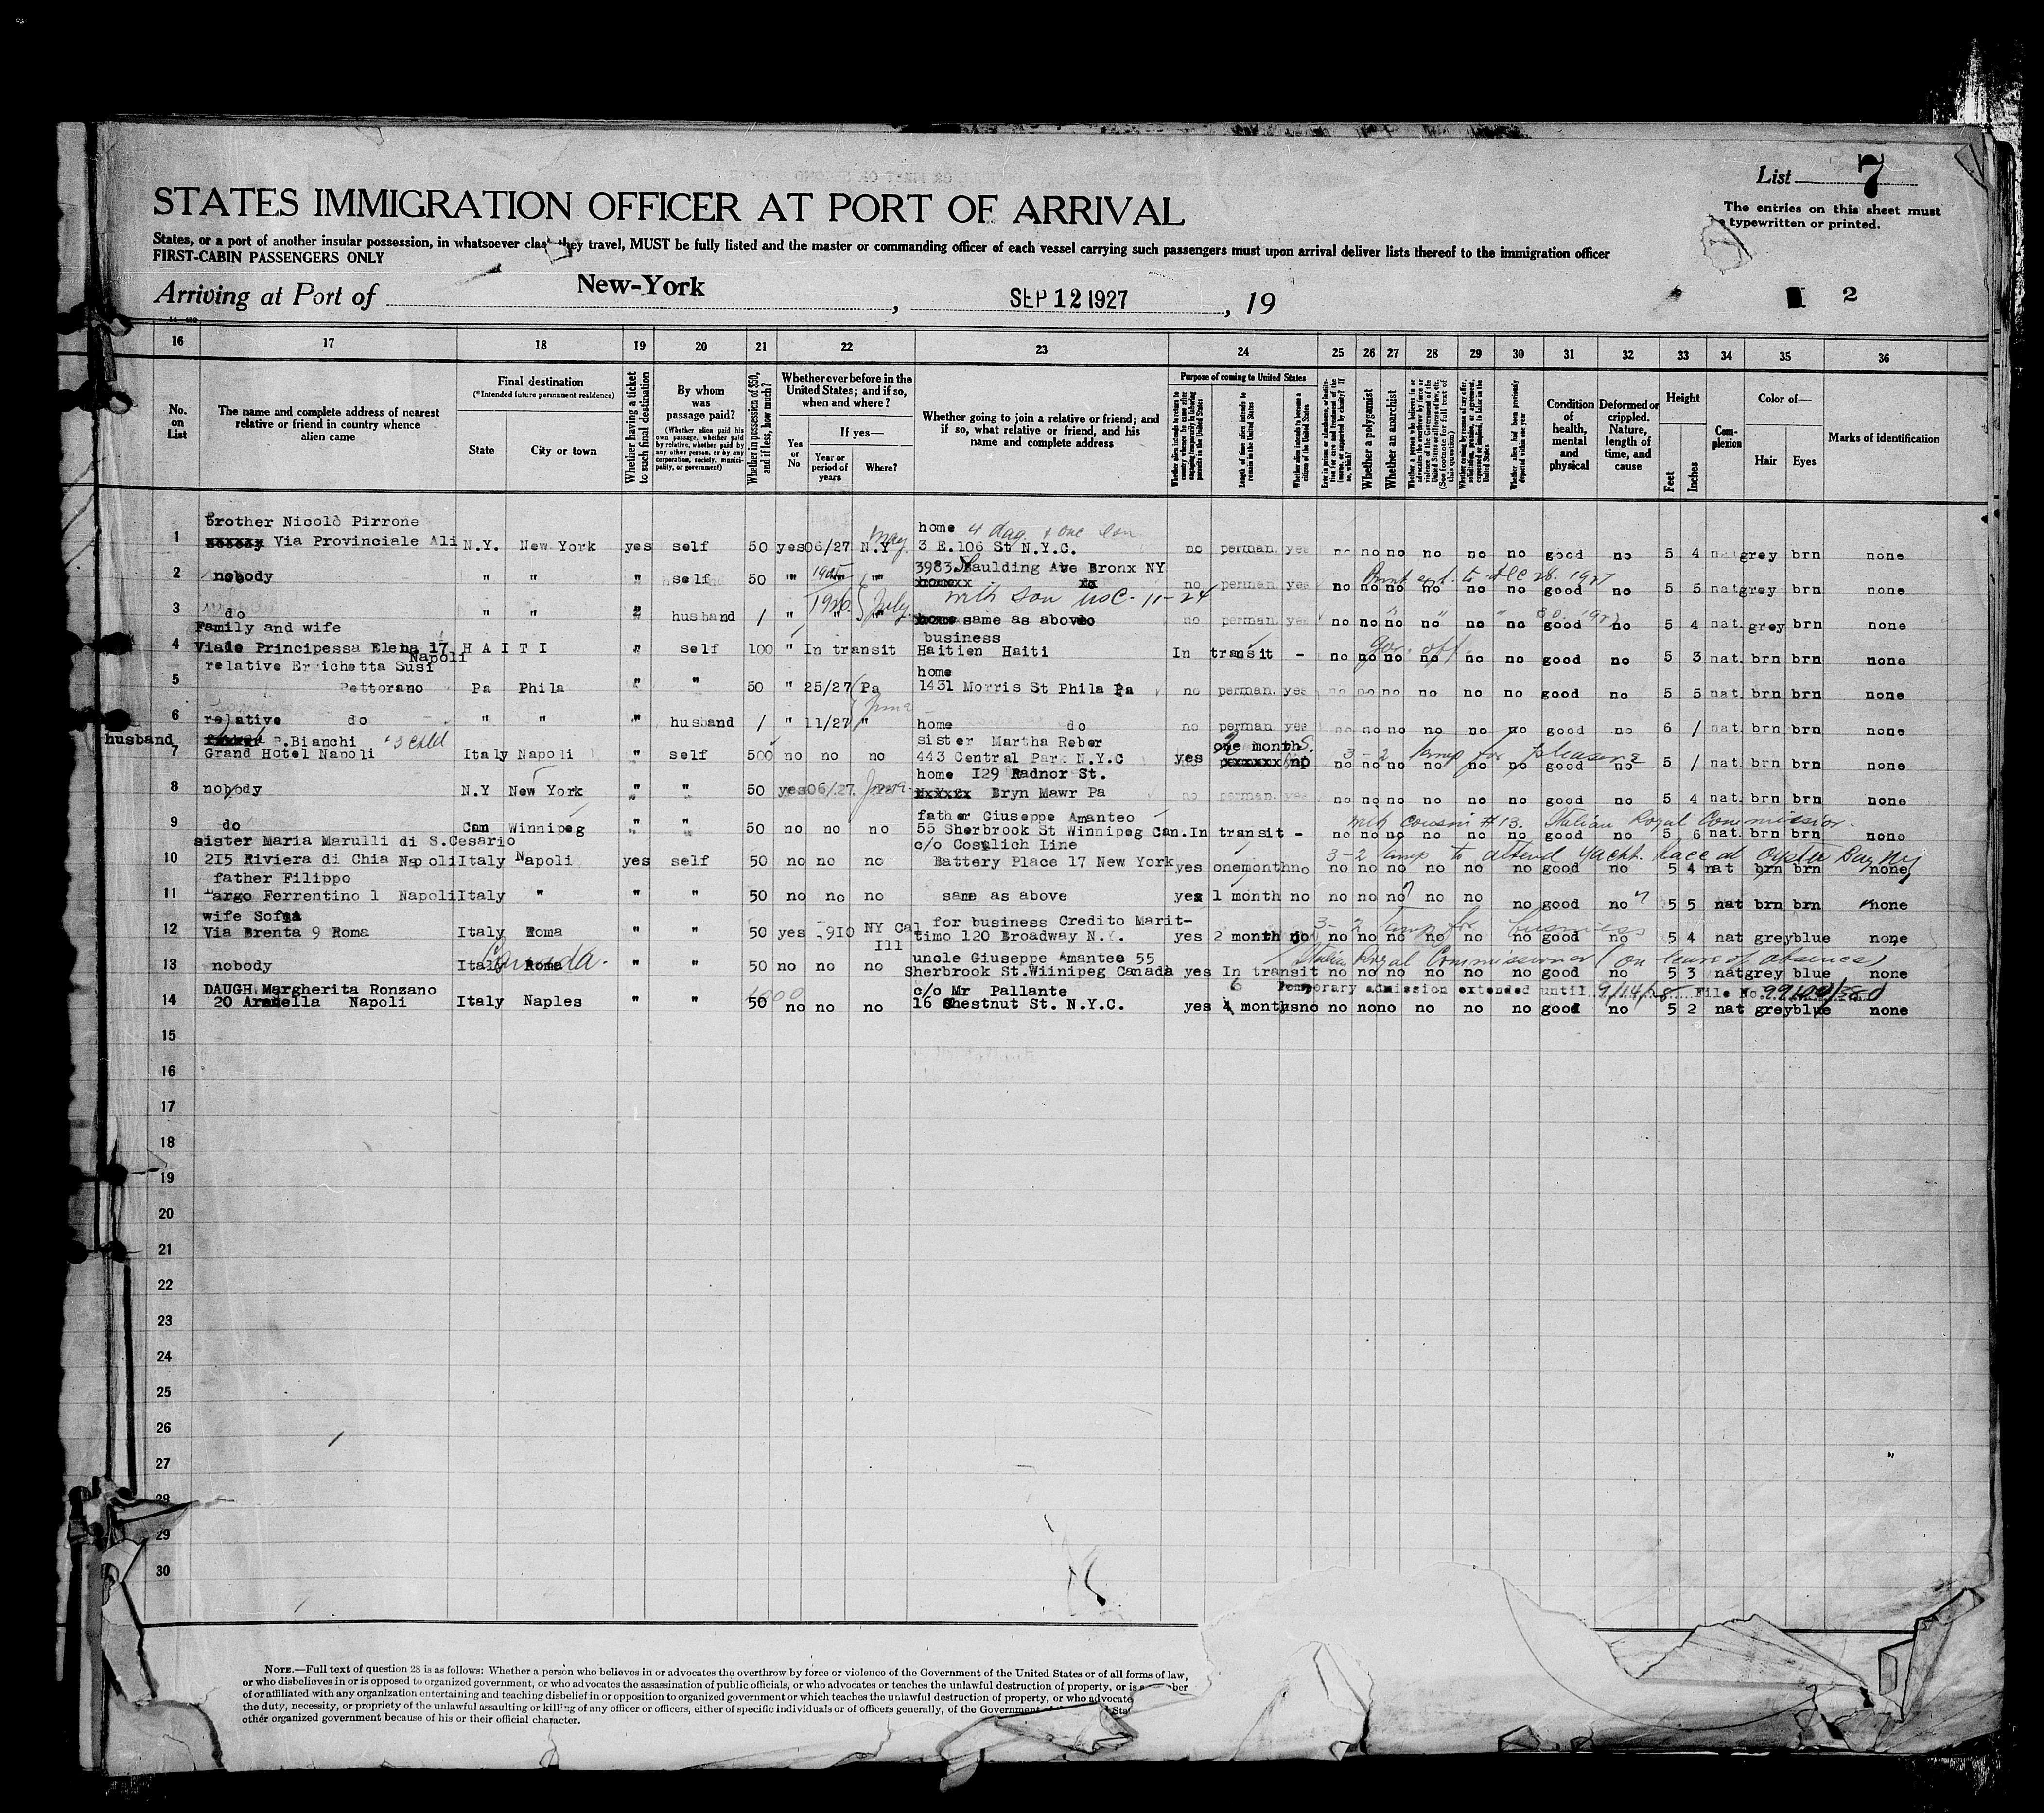 List 7
The entries on this sheet must
typewritten or printed.
STATES IMMIGRATION OFFICER AT PORT OF ARRIVAL
States, or a port of another insular possession, in whatsoever class they travel, MUST be fully listed and the master or commanding officer of each vessel carrying such passengers must upon arrival deliver lists thereof to the immigration officer
FIRST-CABIN PASSENGERS ONLY
Arriving at Port of New-York, SEP 12 1927, 19
2
16 17 18 19 20 21 22 23 24 25 26 27 28 29 30 31 32 33 34 35 36
No. on List
The name and complete address of nearest relative or friend in country whence alien came
Final destination
(*Intended future permanent residence)
State
City or town
Whether having a ticket to such final destination
By whom was passage paid?
(Whether alien paid his own passage, whether paid by relative, whether paid by any other person, or by any corporation, society, municipality, or government)
Whether in possession of $50, and if less, how much?
Whether ever before in the United States; and if so, when and where?
Yes or No
If yes—
Year or period of years
Where?
Whether going to join a relative or friend; and if so, what relative or friend, and his name and complete address
Purpose of coming to United States
Length of time alien intends to remain in the United States
Whether alien intends to become a citizen of the United States
Whether a polygamist
Whether an anarchist
Condition of health, mental and physical
Deformed or crippled. Nature, length of time, and cause
Height
Feet
Inches
Complexion
Color of—
Hair
Eyes
Marks of identification
brother Nicolò Pirrone home 4 dag. & one son
1 Via Provinciale Ali N.Y. New York yes self 50 yes 06/27 N.Y May 3 E.106 St N.Y.C. no perman. yes no no no no no no good no 5 4 nat grey brn none
3983 Paulding Ave Bronx NY
2 nobody " " " self 50 " 1905 " no perman. yes no no no no no no good no 5 5 nat grey brn none
with son USC- 11-24
3 do " " " husband / " 1926 July same as above no perman. yes no no no no no no good no 5 4 nat. grey brn none
Family and wife business
4 Viale Principessa Elena 17 Napoli HAITI " self 100 " In transit Haitien Haiti In transit - no no no no no no good no 5 3 nat. brn brn none
relative Errichetta Susi home
5 Pettorano Pa Phila " " 50 " 25/27 Pa 1431 Morris St Phila Pa no perman. yes no no no no no no good no 5 5 nat. brn brn none
6 relative do " " " husband / " 11/27 " June home do no perman yes no no no no no no good no 6 / nat. brn brn none
husband P.Bianchi & 3 child sister Martha Reber one month
7 Grand Hotel Napoli Italy Napoli " self 500 no no no 443 Central Park N.Y.C yes no no no no no no no good no 5 / nat. brn brn none
3-2 temp for pleasure
home I29 Radnor St.
8 nobody N.Y New York " " 50 yes 06/27 June Bryn Mawr Pa no perman. yes no no no no no no good no 5 4 nat. brn brn none
father Giuseppe Amanteo with cousin #13. Italian Royal Commissior.
9 do Can Winnipeg " " 50 no no no 55 Sherbrook St Winnipeg Can. In transit - no no no no no no good no 5 6 nat. brn brn none
sister Maria Marulli di S.Cesario c/o Cosulich Line
3-2 temp to attend yacht race at Oyster Bay NY
10 2I5 Riviera di Chia Napoli Italy Napoli yes self 50 no no no Battery Place 17 New York yes onemonth no no no no no no no good no 5 4 nat brn brn none
father Filippo
11 Largo Ferrentino 1 Napoli Italy " " " 50 no no no same as above yes 1 month no no no no no no no good no 5 5 nat brn brn none
wife Sofia for business Credito Marit-
3-2 temp for business
12 Via Brenta 9 Roma Italy Roma " " 50 yes 9I0 NY Cal Ill timo 120 Broadway N.Y. yes 2 month no no no no no no no good no 5 4 nat grey blue none
Canada. uncle Giuseppe Amanteo 55 Italian Royal Commissioner (on leave of absence)
13 nobody Italy Roma " " 50 no no no Sherbrook St.Wiinipeg Canada yes In transit no no no no no no good no 5 3 nat grey blue none
DAUGH Margherita Ronzano 1000 c/o Mr Pallante 6 Temporary admission extended until 9/14/28 File No. 99100/380
14 20 Arenella Napoli Italy Naples " " 50 no no no 16 Chestnut St. N.Y.C. yes 4 months no no no no no no no good no 5 2 nat grey blue none
15
16
17
18
19
20
21
22
23
24
25
26
27
28
29
30
NOTE.—Full text of question 28 is as follows: Whether a person who believes in or advocates the overthrow by force or violence of the Government of the United States or of all forms of law,
or who disbelieves in or is opposed to organized government, or who advocates the assassination of public officials, or who advocates or teaches the unlawful destruction of property, or is a
of or affiliated with any organization entertaining and teaching disbelief in or opposition to organized government or which teaches the unlawful destruction of property, or who advocate
the duty, necessity, or propriety of the unlawful assaulting or killing of any officer or officers, either of specific individuals or of officers generally, of the Government
other organized government because of his or their official character.